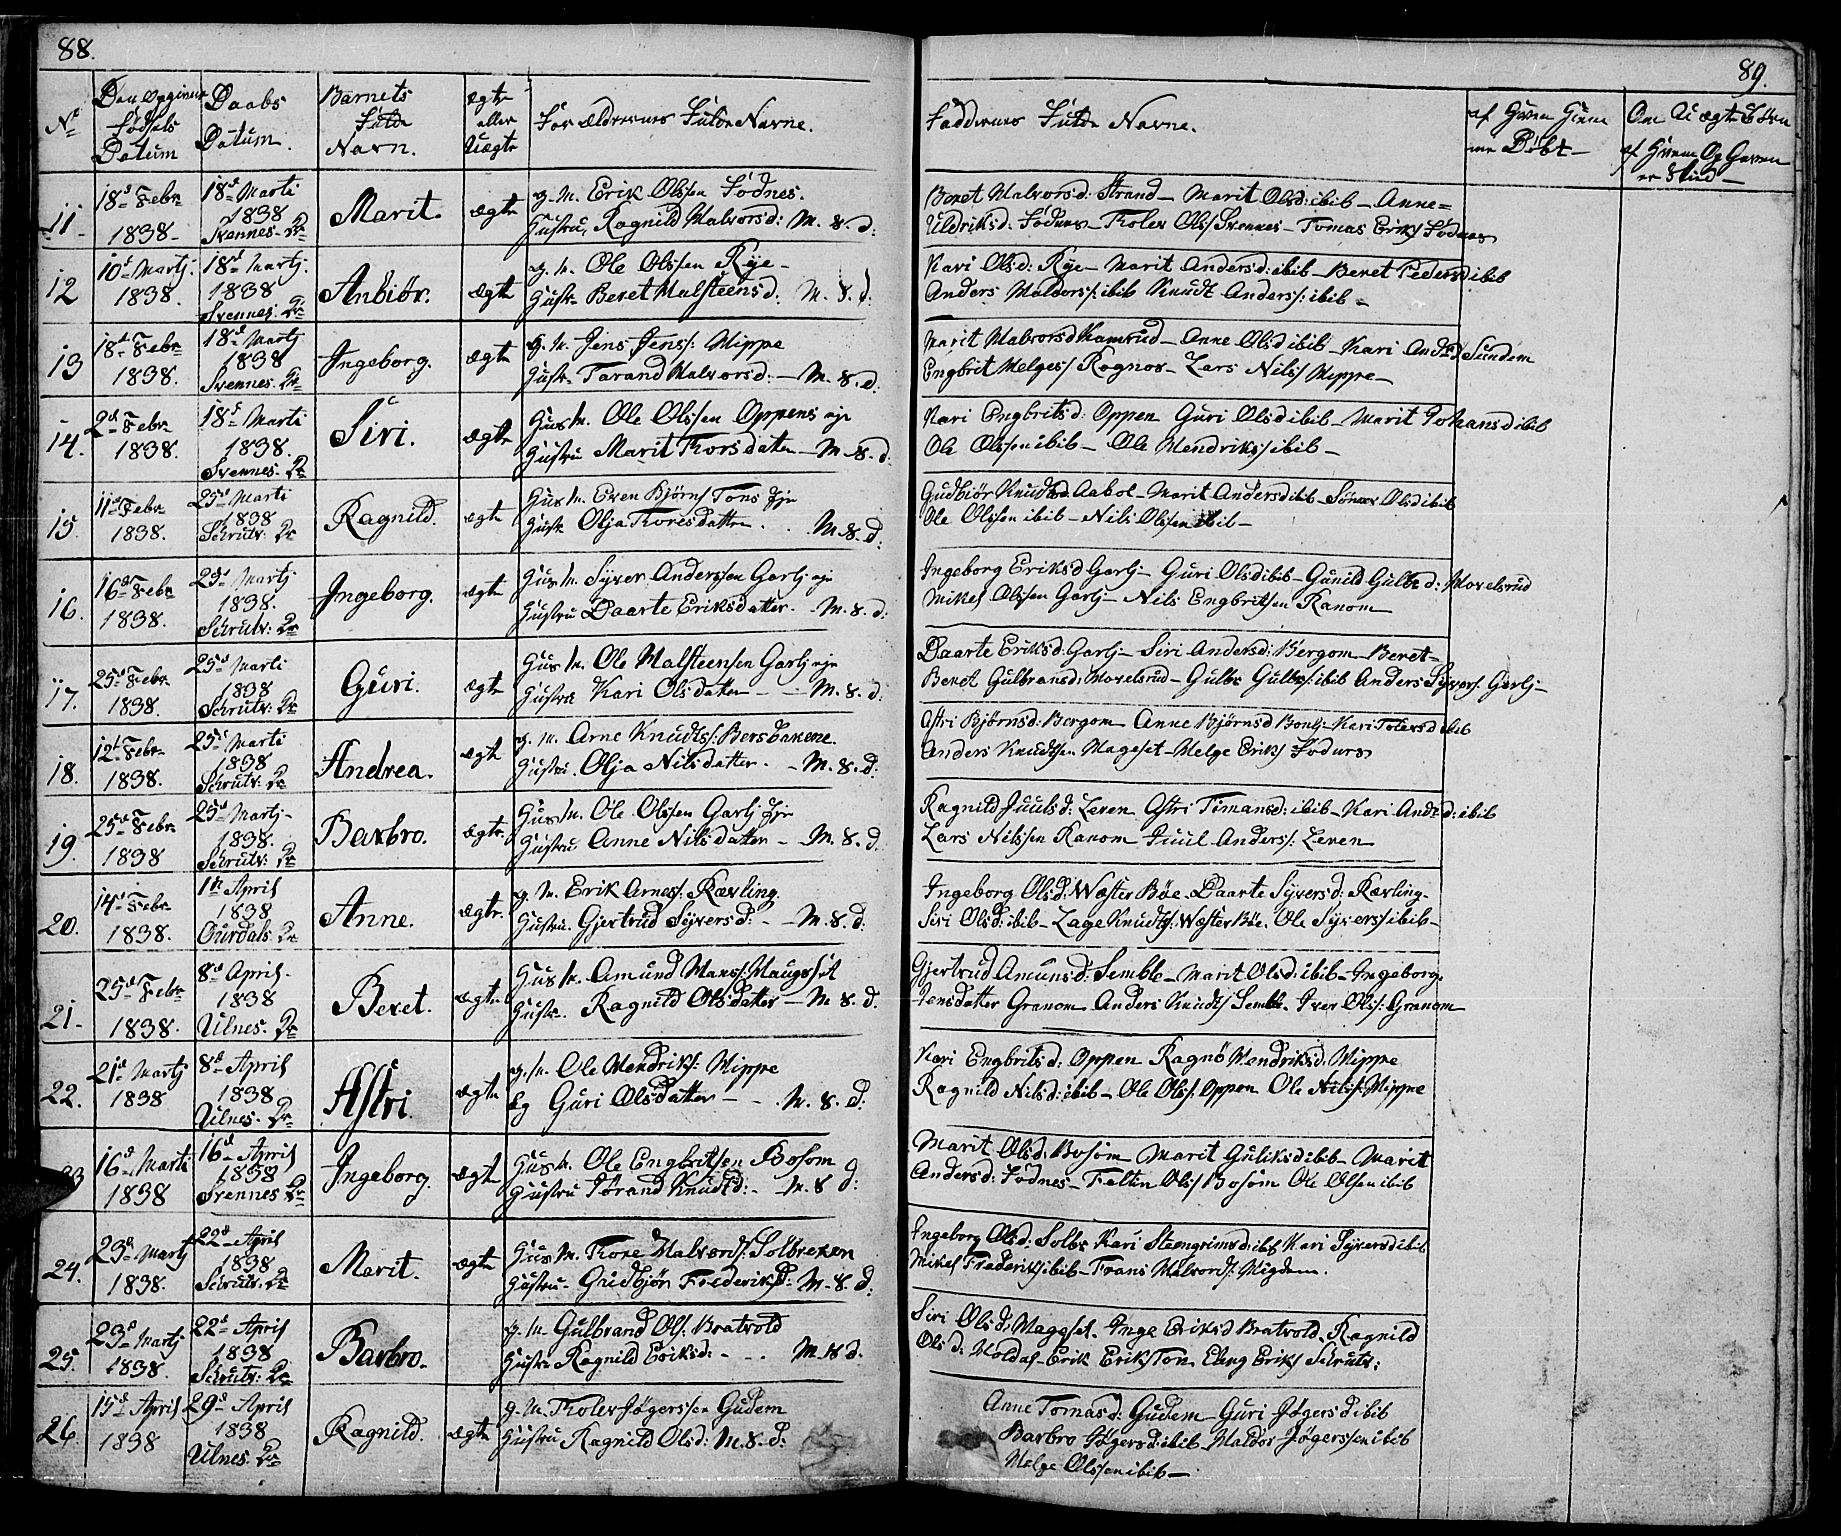 88.
No
Den opgivne
Fødsels
Datum
Daabs
Datum.
Barnets
fulde
Navn.
ægte
eller
Uægte
Forældrenes fulde Navne.
11
18de Febr
1838
18de Marti
1838
Svennes. Kr
Marit.
ægte
g. M. Erik Olssen Fødnes.
Hustru, Ragnild Halvorsd: M. 8. d:
12
10de Martj.
1838.
18de Martj.
1838
Svennes. Kr
Anbiør.
ægte
g. M. Ole Olssen Rye
Hustr. Beret Halsteensd. M. 8. d:
13
18de Febr
1838.
18de Martj
1838
Svennes. Kr
Ingeborg.
ægte
g. M. Jens Jens/: Hippe
Hustr. Tarand Halvorsd: M. 8. d:
14.
2de Febr
1838.
18de Marti
1838.
Svennes. Kr
Siri.
ægte
Huus M. Ole Olssen Oppens eje
Hustru Marit Thorsdatter M. 8. d:
15.
11te Febr
1838.
25de Marti
1838
Schrutv: Kr
Ragnild.
ægte
Huus M. Even Bjørns/ Tons Eje
Hustr. Olja Thoresdatter. M. 8. d:
16.
16de Febr
1838.
25de Martj
1838.
Schrutv: Kr
Ingeborg.
ægte
Huus M. Syver Anderssen Garlj eje
Hustru Daarte Eriksdatter. M. 8. d:
17.
25de Febr
1838.
25de Marti
1838
Schrutv: Kr
Guri.
ægte
Huus M. Ole Halsteensen Garlj eje
Hustru Kari Olsdatter M. 8. d:
18.
12te Febr.
1838.
25de Marti
1838
Schrutv: Kr
Andrea.
ægte
g. M. Arne Knudts/: Bersbakene.
Hustru. Olja Nilsdatter. M. 8. d:
19.
25de Febr
1838
25de Martj
1838.
Schrutv: Kr
Barbro.
ægte.
Huus M. Ole Olssen Garlj Eje
Hustru Anne Nilsdatter M. 8. d.
20.
14de Febr
1838.
1te April
1838
Ourdals Kr
Anne.
ægte.
g. M. Erik Arnes/. Kærling.
Hustru. Gjertrud Syversd: M. 8. d:
21.
25de Febr
1838.
8de April.
1838
Ulnes. Kr
Beret.
ægte
Huus M. Amund Hans/: Haugset
Hustr. Ragnild Olsdatter M. 8. d.
22.
21de Martj
1838
8de April
1838
Ulnes. Kr
Astri.
ægte
g. M. Ole Hendriks/: Hippe
og Guri Olsdatter M. 8. d:
16de Marti
1838
16de April
1838
Svennes Kr
Ingeborg.
ægte
Huus M. Ole Engbritsen Bosom
Hustru Torand Knudtd: M. 8 d:
24.
23de Martj
1838.
22de April
1838
Schrutv. Kr
Marit.
ægte
Huus M. Thore Halvords/. Solbrekken
Hustru Gudbjør Frederiksd: M. 8. d:
25.
23de Martj
1838.
22de April
1838
Schrutv: Kr
Barbro.
g. M. Gulbrand Ols/. Bratvold
Hustru Ragnild Eriksd: M. 8 d:
26.
15de April
1838
29de April
1838
Ulnes. Kr
Ragnild.
ægte
g. M. Tholev Jøgerssen Gudem
Hustru Ragnild Olsd: M. 8. d:
89.
Faddernes Fulde Navne.
Døbt
Beret Halvorsd: Strand Marit Olsd: ibib Anne
Uldriksd. Fødnes Tholev Ols/ Svennes Tomas Eriks/ Fødnes
Kari Olsd: Rye Marit Andersd: ibib Beret Pedersd ibib
Anders Haldors/: ibib Knudt Anders/: ibib
Marit Halvorsd Kamrud Anne Olsd ibib Kari Andsd Sundem
Engbrit Helges/ Rognos Lars Nils/ Hippe
Kari Engbritsd: Oppen Guri Olsd ibib Marit Johansd ibib
Ole Olssen ibib Ole Hendriks/ ibib
Gudbiør Knudtsd. Aabol Marit Andersd ibib Olsd ibib
Ole Olssen ibib Nils Olssen ibib
Ingeborg Eriksd Garlj Guri Olsd ibib Gunild Gulbr d: Moxelsrud
Mikel Olssen Garlj Nils Engbritsen Ranom
Daarte Eriksd. Garlj Siri Andersd: Bergom Beret
Beret Gulbransd: Moxelsrud Gulbr Gulbrs/ ibib Anders Syvers/. Garlj
Astri Bjørnsd: Bergom Anne Bjørnsd Kari Tolevsd ibib
Anders Knudtsen Mageset Helge Eriks/ Fødnes
Ragnild Juulsd: Leren Astri Timansd: ibib Kari Andsd: ibib
Lars Nilssen Ranom Juul Anders/: Leren
Ingeborg Olsd: Wæster Bøe Daarte Syversd: Kærling.
Siri Olsd: ibib Lage Knudts/: Wæster Bøe. Ole Syvers/ ibib
Gjertrud Amunsd: Semble Marit Olsd. ibib Ingeborg
Jensdatter Granom Anders Knudts/ Semble. Iver Ols/: Granom
Kari Engbritsd: Oppen Ragnø Hendriksd: Hippe
Ragnild Nilsd: ibib Ole Ols/: Oppen Ole Nils/: Hippe
Marit Olsd. Bosom Marit Guliksd ibib Marit
Andersd: Fødnes Feltin Ols/ Bosom Ole Olsen ibib
Ingeborg Olsd: Solbr Kari Steengrimsd: ibid Kari Syversd ibib
Mikel Frederiks/ ibib Frans Halvords/: Migdem.
Siri Olsd: Maggset Inge Eriksd Bratvold. Ragnild
Olsd: Holdal Erik Eriks/ Ton Elling Eriks/ Schrutv:
Anne Tomasd: Gudem Guri Jøgersd ibib
Barbro Jøgersd: ibib Haldor Jøgerssen ibib
Helge Olssen ibib